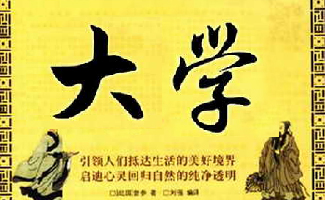 大学
引领人们抵达生活的美好境界
启迪心灵回归自然的纯净透明